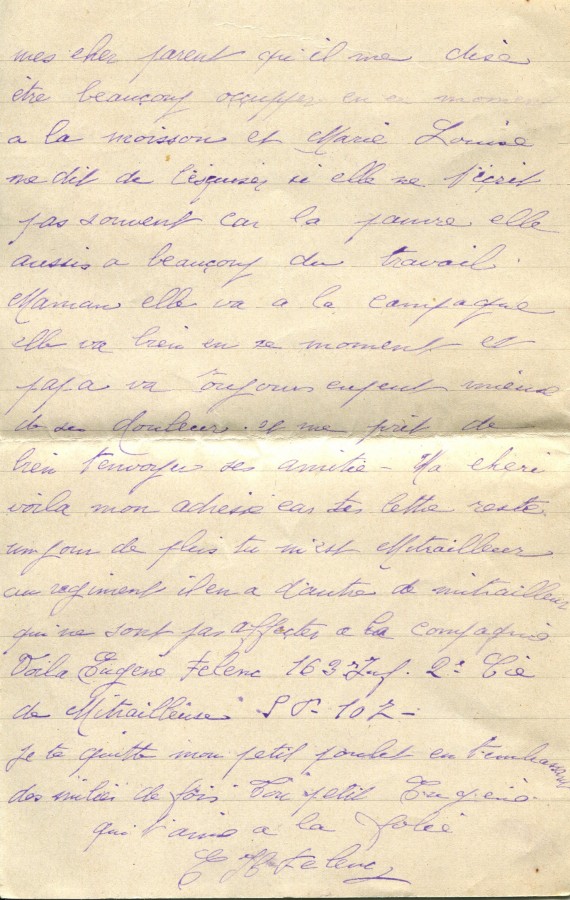 mes cher parent qu'il me dise
être beaucoup occupper en ce moment
a la moisson et Marie Louise
me dit de l'esquiser si elle ne t'écrit
pas souvent car la pauvre elle
aussis a beaucoup du travail.
Maman elle va a la campagne
elle va bien en se moment et
papa va toujours
de ses douleur. il me prit de
bien t'envoyer ses amitié - Ma cheri
voila mon adresse car tes lettre reste
un jour de plus tu m'est Mitrailleur
au regiment il en a d'autre de mitrailleur
qui ne sont pas affecter a la compagnie
Voila Eugene Felenc 163e Inf. 2e Cie
de Mitrailleuse S P. 107 -
je te quitte mon petit poulet en t'embrassant
des milies de fois Ton petit Eugène
qui t'aime a la folie
E Felenc